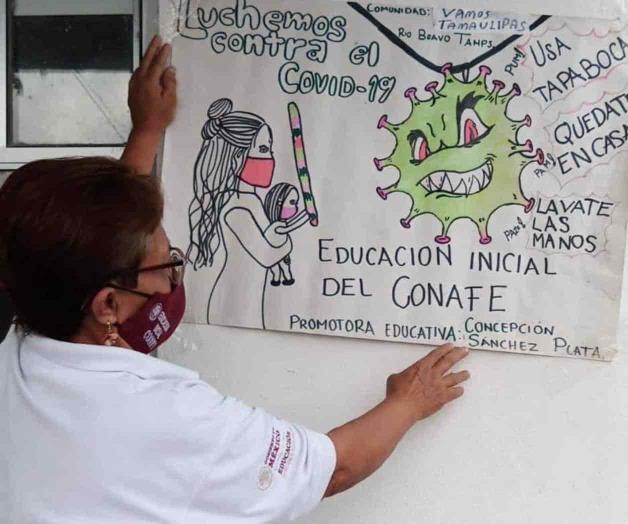 Luchemos
contra el
COVID-19
COMUNIDAD: VAMOS
TAMAULIPAS
RIO BRAVO TAMPS.
PUM!
USA
TAPABOCA
PUM!
QUEDATE
EN CASA
PAZ!
LAVATE
LAS
MANOS
EDUCACION INICIAL
DEL CONAFE
PROMOTORA EDUCATIVA: CONCEPCIÓN
SÁNCHEZ PLATA
MÉXICO
EDUCACIÓN